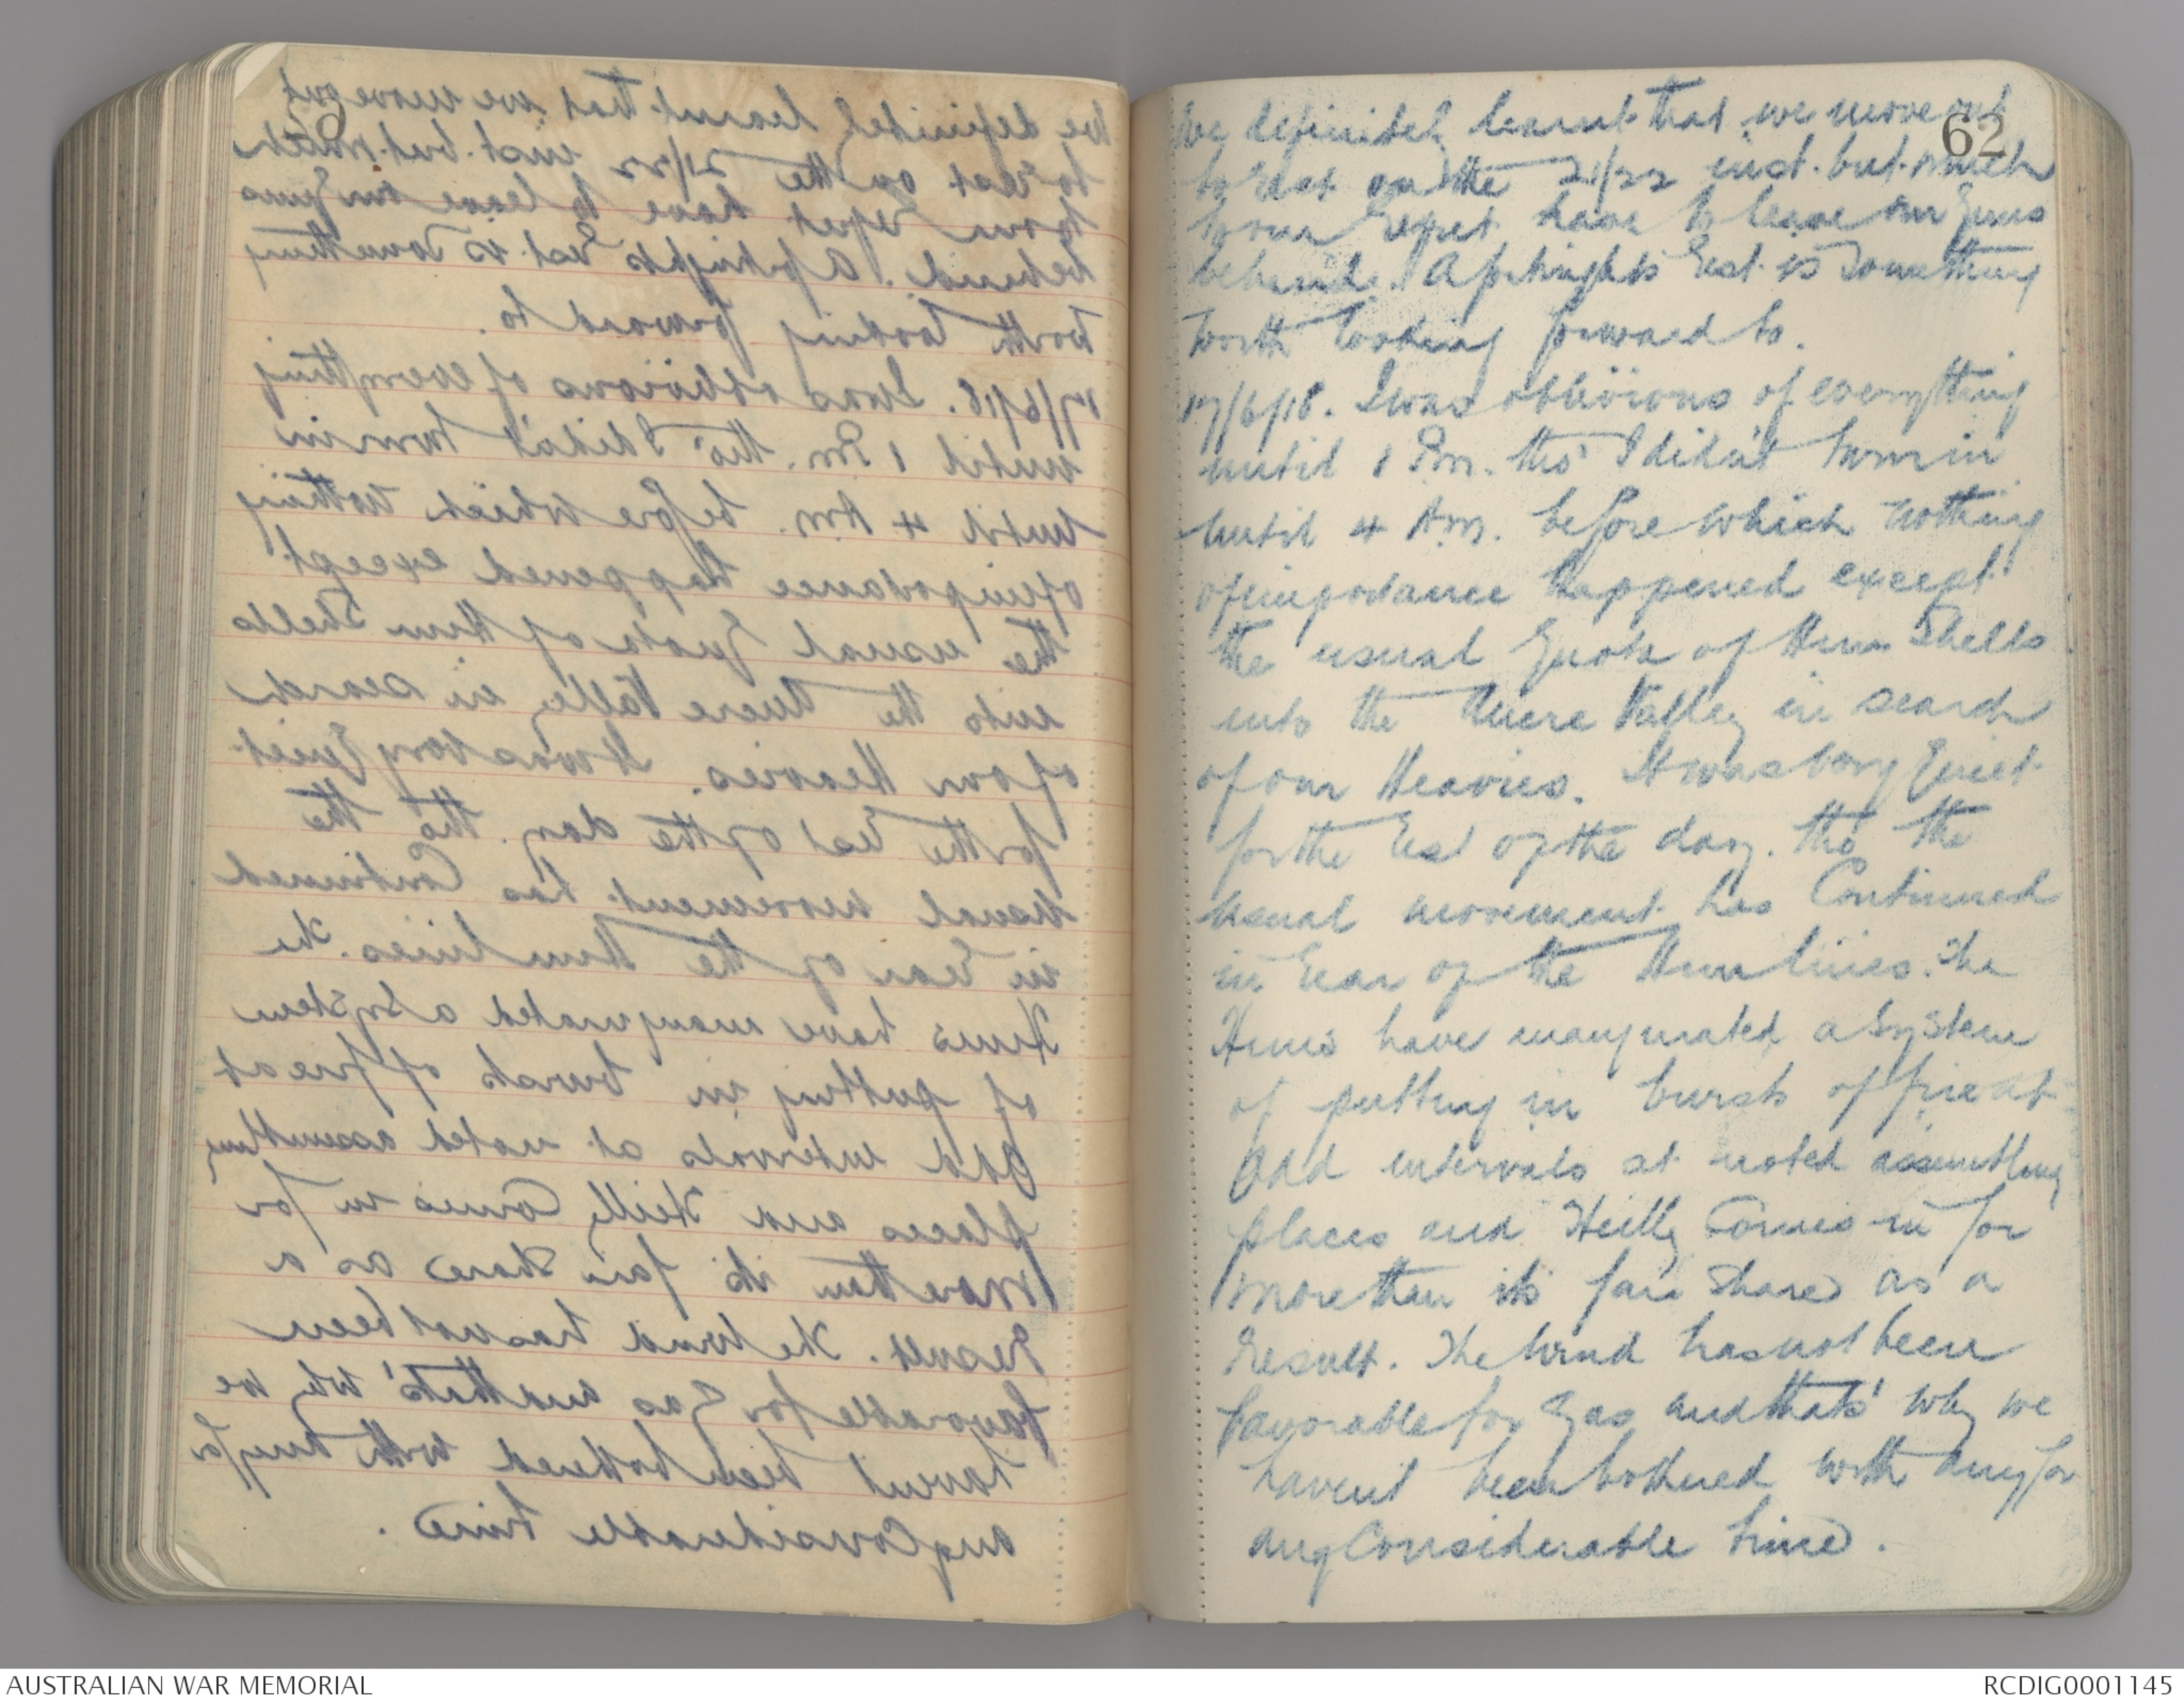 62
We definitely learnt that we move out
to rest on the 21/22 inst. but much
to our regret have to leave our guns
behind. A fortnights rest is something
worth looking forward to.
17/6/18. I was oblivious of everything
until 1 Pm. tho' I didn't turn in
until 4 Am. before which nothing
of importance happened except
the usual quota of Hun Shells
into the Ancre Valley in search
of our Heavies. It was very quiet
for the rest of the day. tho' the
usual movement has Continued
in rear of the Hun lines. The
Huns have inaugurated a System
of putting in bursts of fire at
odd intervals at noted assembling
places and Heilly Comes in for
more than its fair share as a
result. The wind has not been
favorable for gas and thats' why we
havent been bothered with any for
any Considerable time.
AUSTRALIAN WAR MEMORIAL
RCDIG0001145